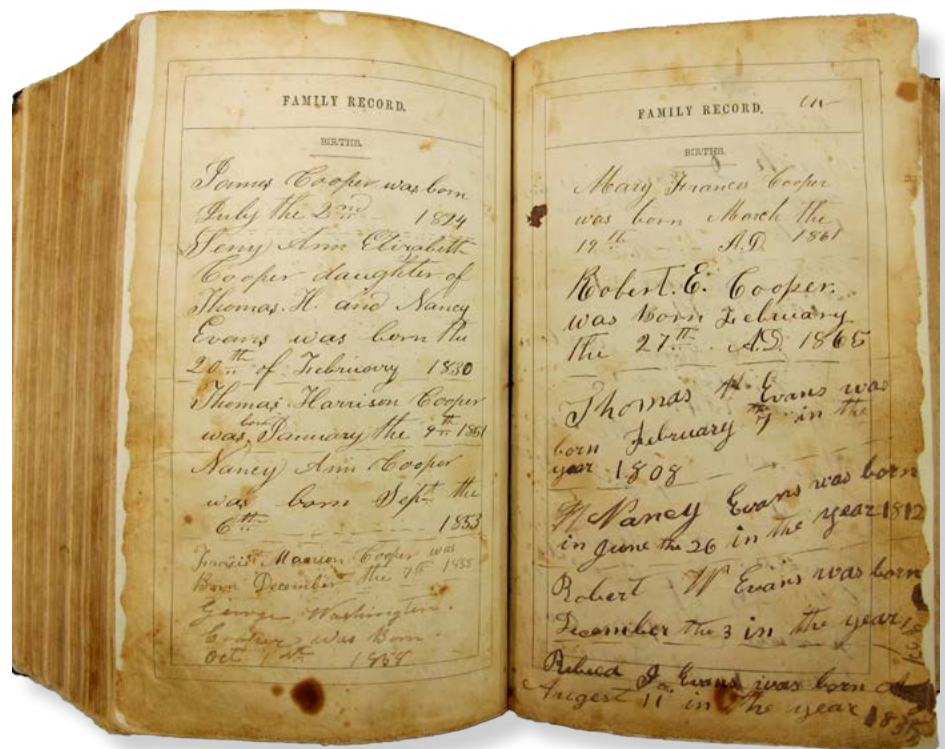 FAMILY RECORD.
BIRTHS.
James Cooper was born
July the 2nd 1824
Ann Elizabeth
Cooper daughter of
Thomas. H. and Nancy
Evans was born the
20th of February 1830
Thomas Harrison Cooper
was born January the 9th 1851
Nancy Ann Cooper
was born Sept the
6th 1853
Marion Cooper was
Born December the 7th 1855
George Washington.
Cooper was Born.
Oct 1858
FAMILY RECORD.
BIRTHS.
Mary Frances Cooper
was born March the
19th A.D. 1861
Robert. E. Cooper.
was born February
the 27th A.D. 1865
Thomas H. Evans was
born February 7th in the
year 1808
Nancy Evans was born
in June the 26 in the year 1812
Robert W Evans was born
December the 3 in the year
J. Evans was born
Augest 11 in the year